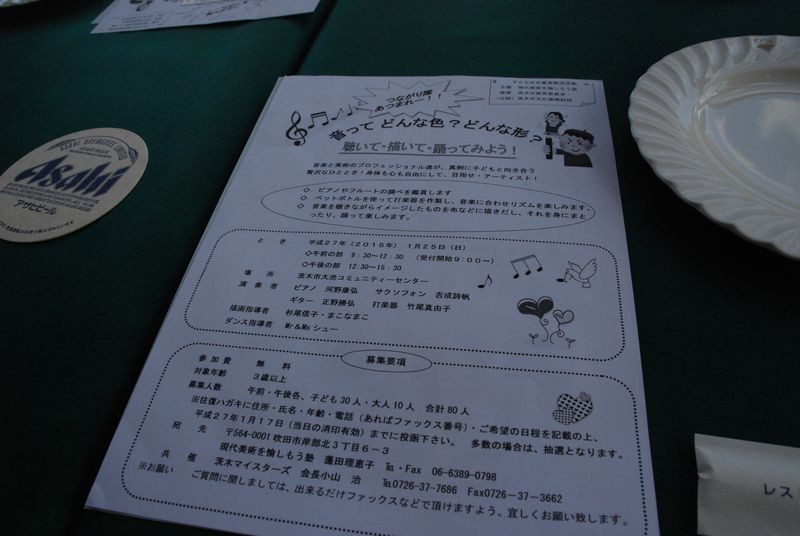 つながり隊
あつまれー！！
子どもゆめ基金助成活動
主催　現代美術を愉しもう塾
後援　茨木市教育委員会
（公財）茨木市文化振興財団
音って どんな色？どんな形？
聴いて・描いて・踊ってみよう！
音楽と美術のプロフェッショナル達が、真剣に子どもと向き合う
贅沢なひととき！身体も心も自由にして、目指せ・アーティスト！
◇ ピアノやフルートの調べを鑑賞します
◇ ペットボトルを使って打楽器を作製し、音楽に合わせリズムを楽しみます。
◇ 音楽を聴きながらイメージしたものを布などに描きだし、それを身にまと
ったり、踊って楽しみます。
と　き　平成27年（2015年） 1月25日（日）
◇午前の部　9：30～12：30　（受付開始9：00～）
◇午後の部　12:30～15：30
場　所　茨木市大池コミュニティーセンター
演　奏　者　ピアノ　河野康弘　サクソフォン　吉成詩帆
ギター　正野勝弘　打楽器　竹尾真由子
描画指導者　杉尾信子・まこなまこ
ダンス指導者　Mr＆Msシュー
募集要項
参 加 費　無　料
対象年齢　3歳以上
募集人数　午前・午後各、子ども30人・大人10人　合計80人
※往復ハガキに住所・氏名・年齢・電話（あればファックス番号）・ご希望の日程を記載の上、
平成27年1月17日（当日の消印有効）までに投函下さい。　多数の場合は、抽選となります。
宛　先　〒564-0001 吹田市岸部北3丁目6－3
現代美術を愉しもう塾　蓬田理恵子　℡・Fax　06-6389-0798
共　催　茨木マイスターズ　会長小山　治　℡0726-37-7686　Fax0726－37－3662
※お願い　ご質問に関しましては、出来るだけファックスなどで頂けますよう、宜しくお願い致します。
ASAHI BREWERIES LIMITED
Asahi
アサヒビール
レス